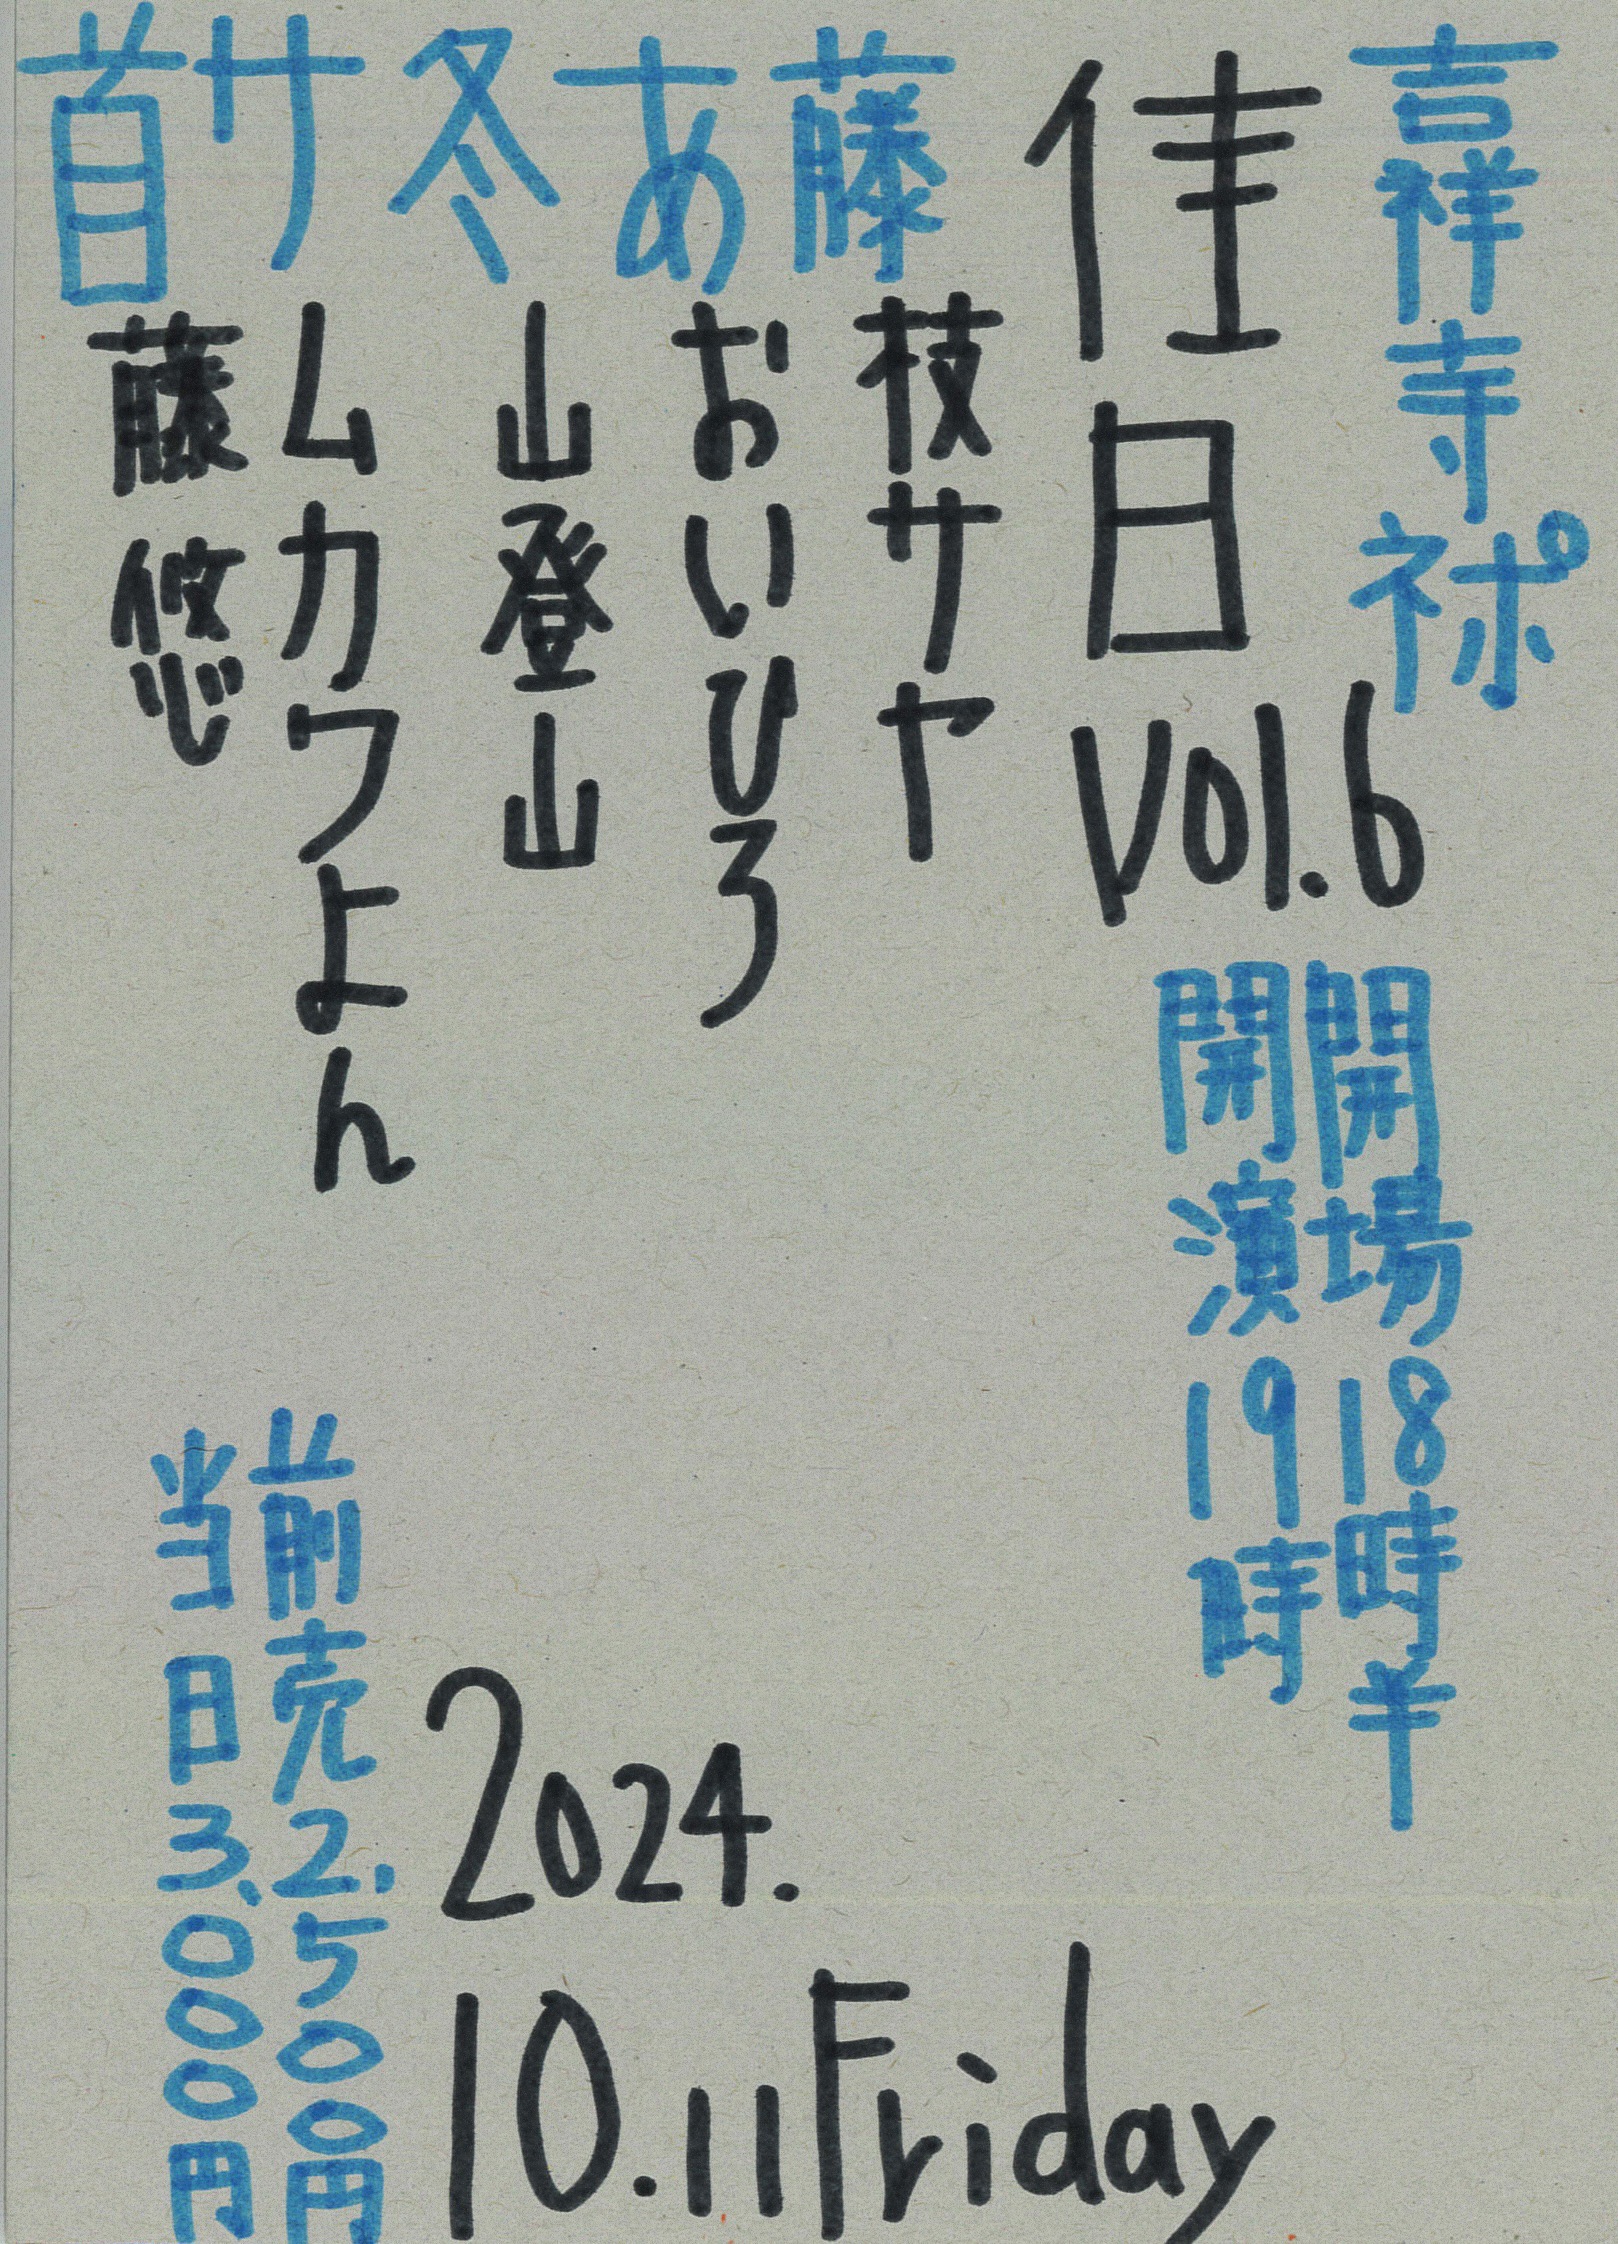 吉祥寺ネポ
佳日vol.6
開場18時半
開演19時
藤枝サヤ
あおいひろ
冬山登山
サムカワよん
首藤悠
2024.
10.11Friday
前売2,500円
当日3,000円